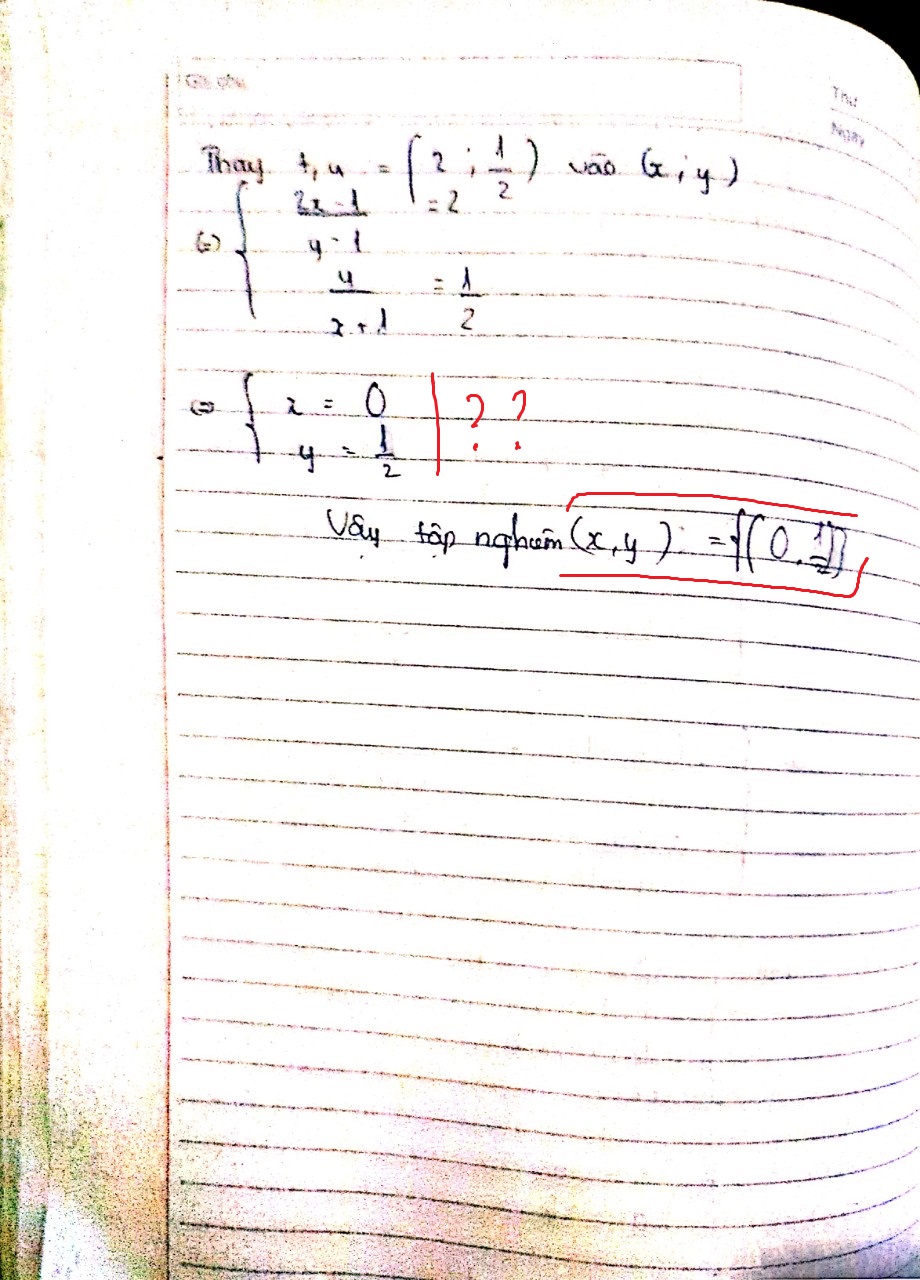 Ghi chú
Thứ
Ngày
Thay t, u = (2 ; 1/2) vào (x ; y)
(=) { (2x - 1)/(y - 1) = 2
y/(x + 1) = 1/2
⇔ { x = 0 | ? ?
y = 1/2
Vậy tập nghiệm (x, y) = {(0, 1/2)}